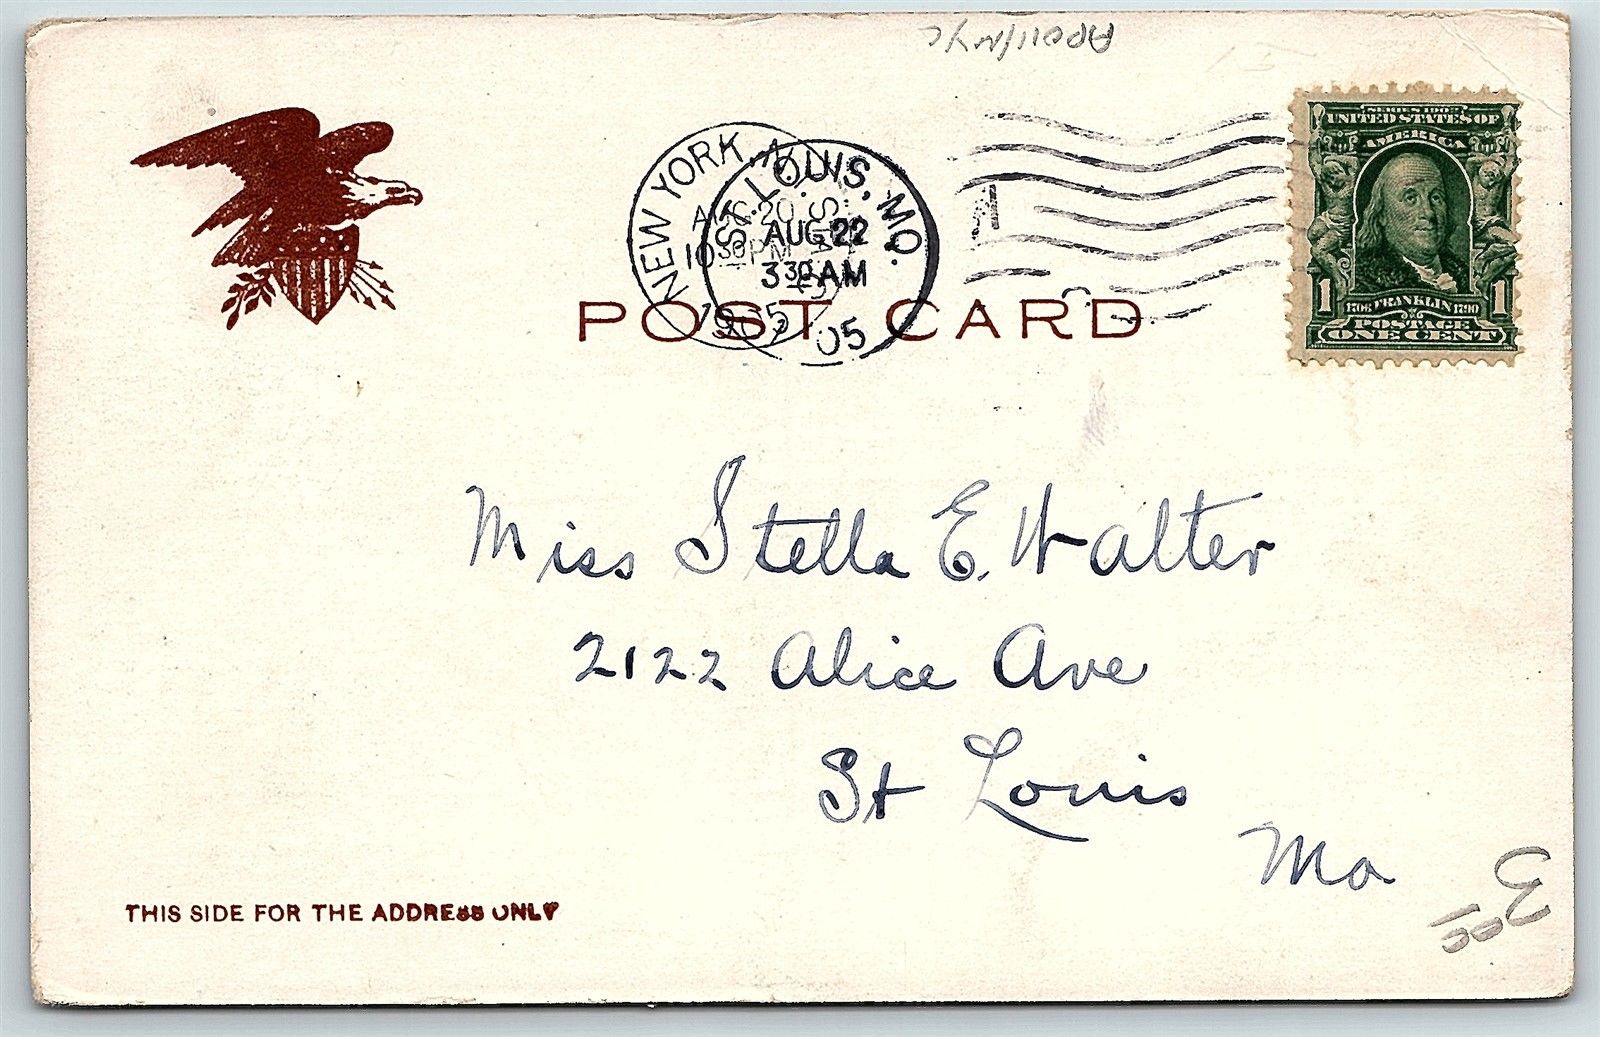 NEW YORK, N.Y.
AUG 20
10 30 PM
1905
ST. LOUIS, MO.
AUG 22
3 30 AM
05
SERIES 1902
UNITED STATES OF
AMERICA
1 1706 FRANKLIN 1790 1
POSTAGE
ONE CENT
POST CARD
Miss Stella E. Walter
2122 Alice Ave
St Louis
Mo
THIS SIDE FOR THE ADDRESS ONLY